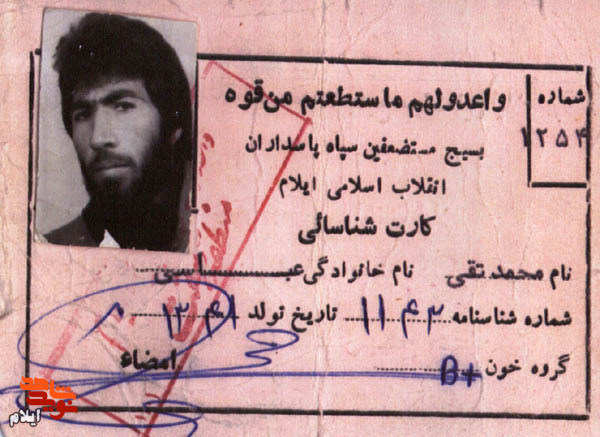 واعدولهم ماستطعتم من قوه
شماره
۱۲۵۴
بسیج مستضعفین سپاه پاسداران
انقلاب اسلامی ایلام
کارت شناسائی
نام محمدتقی نام خانوادگی عبـــاسی
شماره شناسنامه ۱۱۴۲ تاریخ تولد ۱۳۴۱
گروه خون B+ امضاء
ایلام